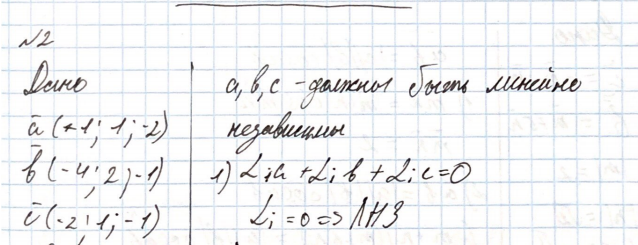 №2
Дано
ā (+1; 1; -2)
b̄ (-4; 2; -1)
c̄ (-2; 1; -1)
a, b, c - должны быть линейно
независимы
1) α₁a + α₂b + α₂c = 0
αᵢ = 0 => ЛНЗ